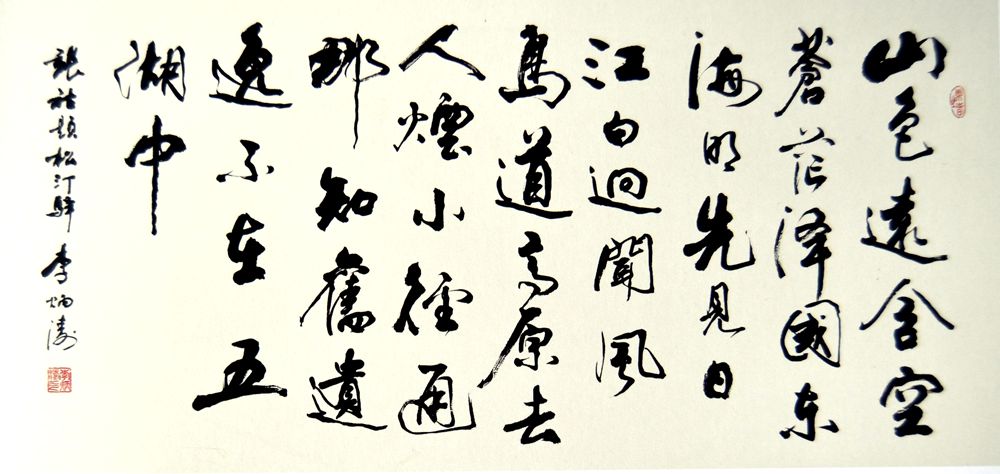 山色遠含空
蒼茫澤國東
海明先見日
江白迥聞風
鳥道高原去
人煙小徑通
那知舊遺
逸不在五
湖中
張祜題松汀驛 李炳濤